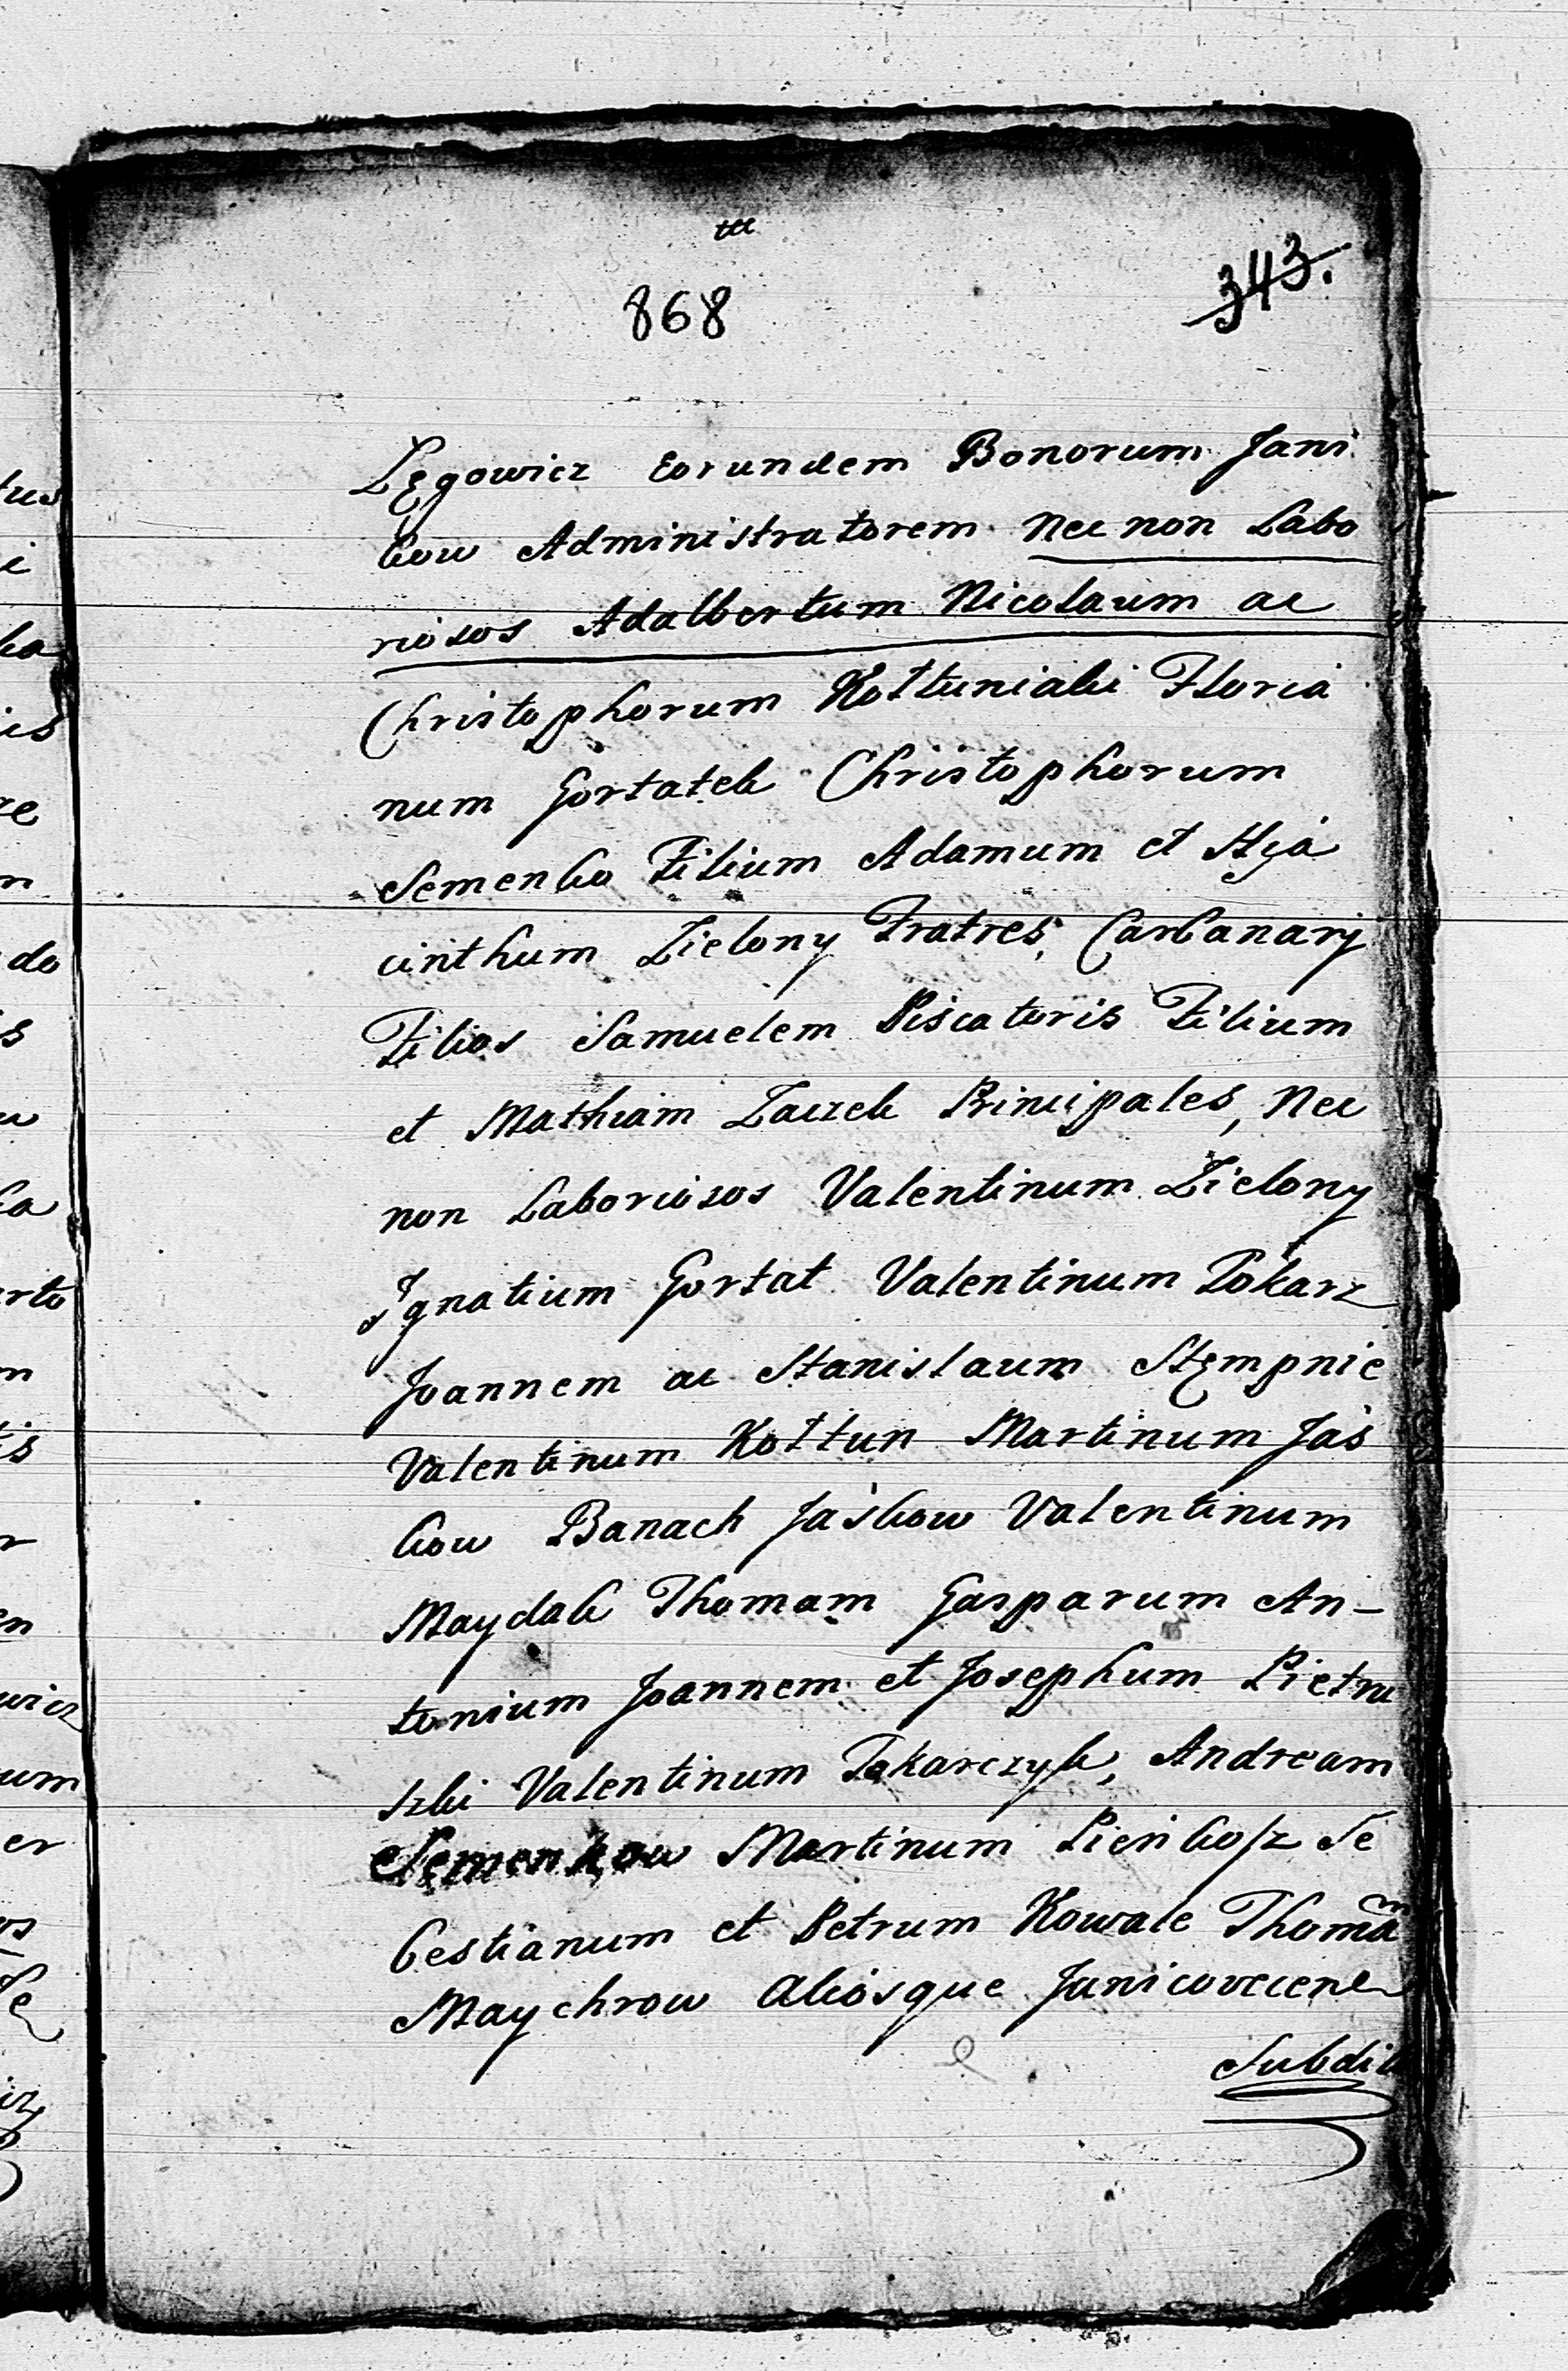 868
343.
Lęgowicz eorundem Bonorum Jani
kow Administratorem nec non Labo
riosos Adalbertum Nicolaum ac
Christophorum Kołtuniaki Floria
num Gortatek Christophorum
Semenko Filium Adamum et Hya
cinthum Zielony Fratres, Carbanarij
Filios Samuelem Piscatoris Filium
et Mathiam Zaczek Principales, Nec
non Laboriosos Valentinum Zielony
Ignatium Gortat Valentinum Tokarz
Joannem ac Stanislaum Stępnie
Valentinum Kołtun Martinum Jas
kow Banach Jaśkow Valentinum
Maydak Thomam Gasparum An-
tonium Joannem et Josephum Pietru
szki Valentinum Tokarczyk, Andream
Semenkow Martinum Pieńkosz Se
bestianum et Petrum Kowale Thomam
Maychrow aliosque Janicovecene
Subdit